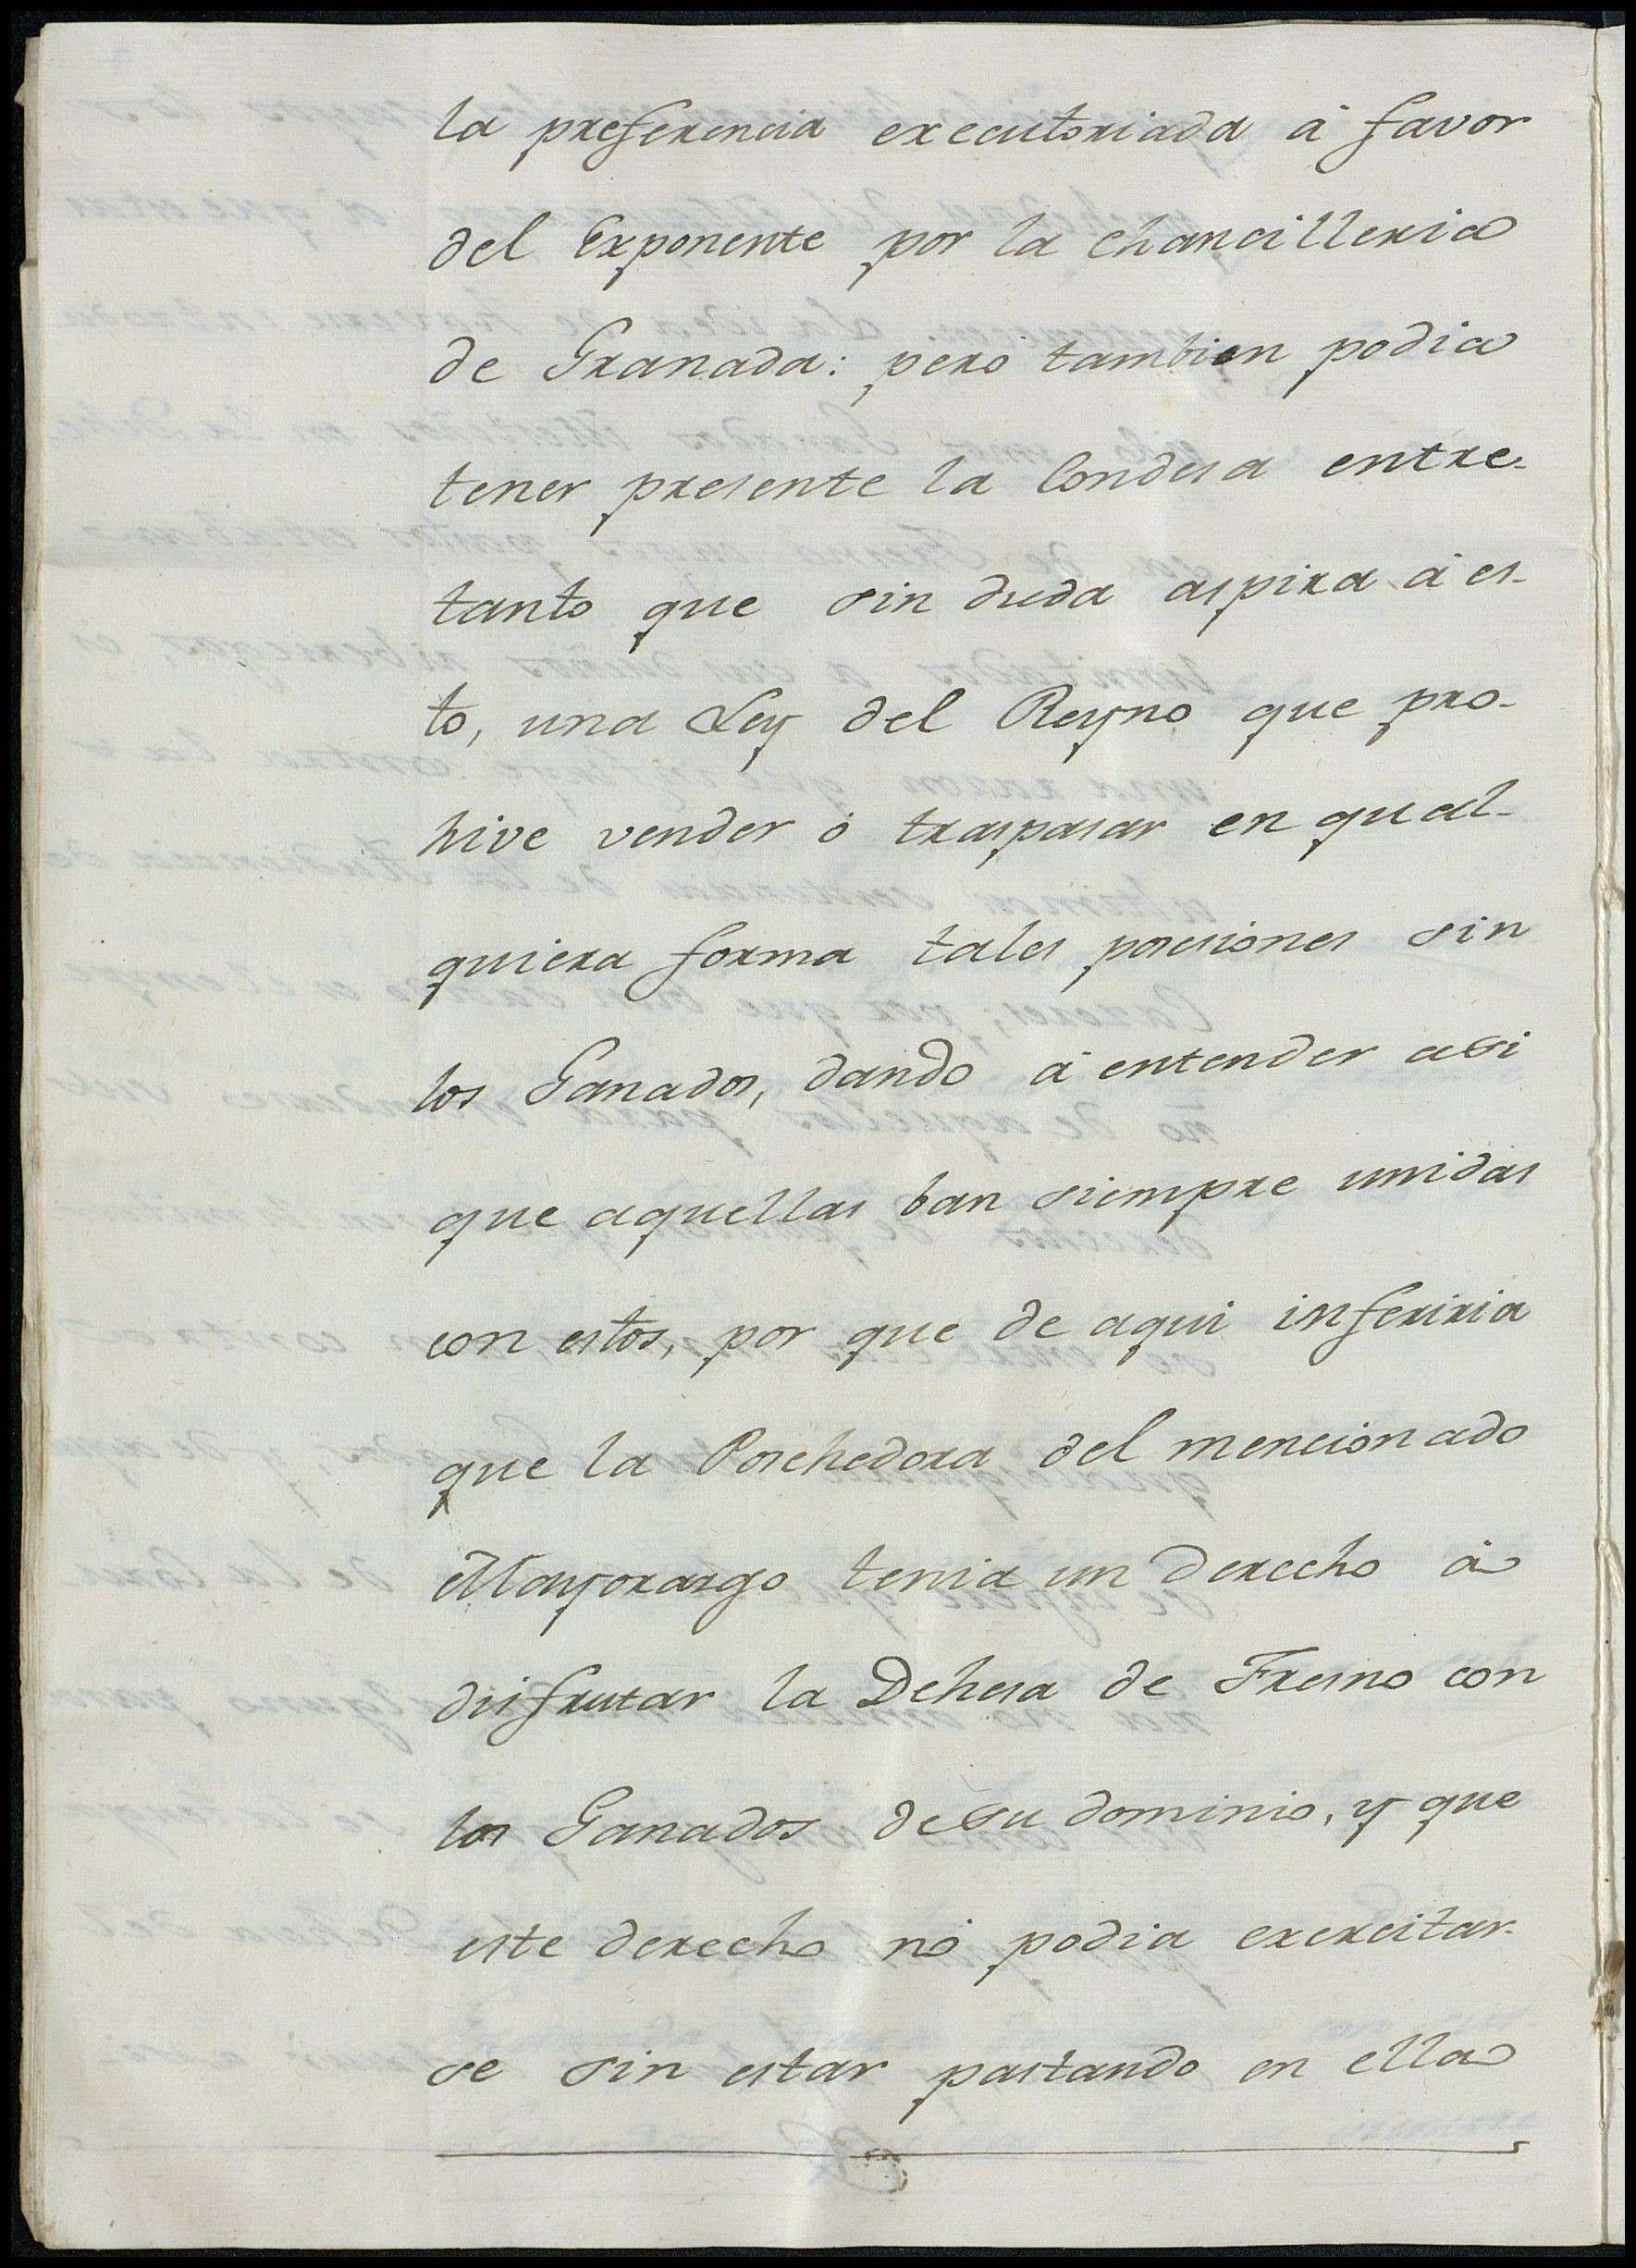 la preferencia executoriada á favor
del Exponente por la Chancilleria
de Granada: pero tambien podia
tener presente la Condesa entre-
tanto que sin duda aspira á es-
to, una Ley del Reyno que pro-
hive vender ó traspasar en qual-
quiera forma tales posesiones sin
los Ganados, dando á entender asi
que aquellas ban siempre unidas
con estos, por que de aqui inferiria
que la Poshedora del mencionado
Mayorazgo tenia un derecho á
disfrutar la Dehesa de Fresno con
los Ganados de su dominio, y que
este derecho nó podia exercitar-
se sin estar pastando en ella